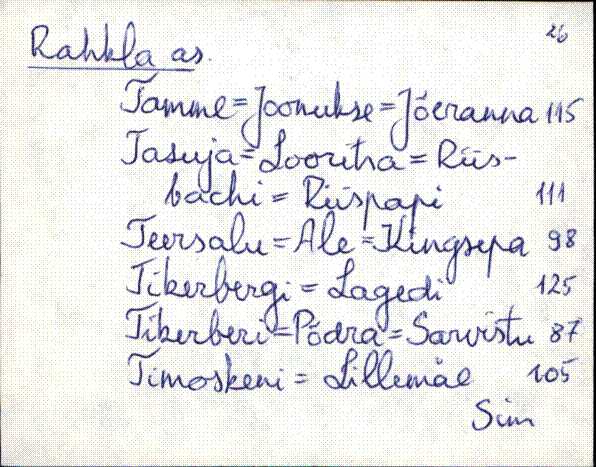 26
Rahkla as.
Tamme = Joonukse = Jõeranna 115
Tasuja = Looritsa = Riis-
bachi = Riispapi 111
Teersalu = Ale = Kingsepa 98
Tikerbergi = Lagedi 125
Tikerberi = Põdra = Sarvistu 87
Timoskeni = Lillemäe 105
Sim